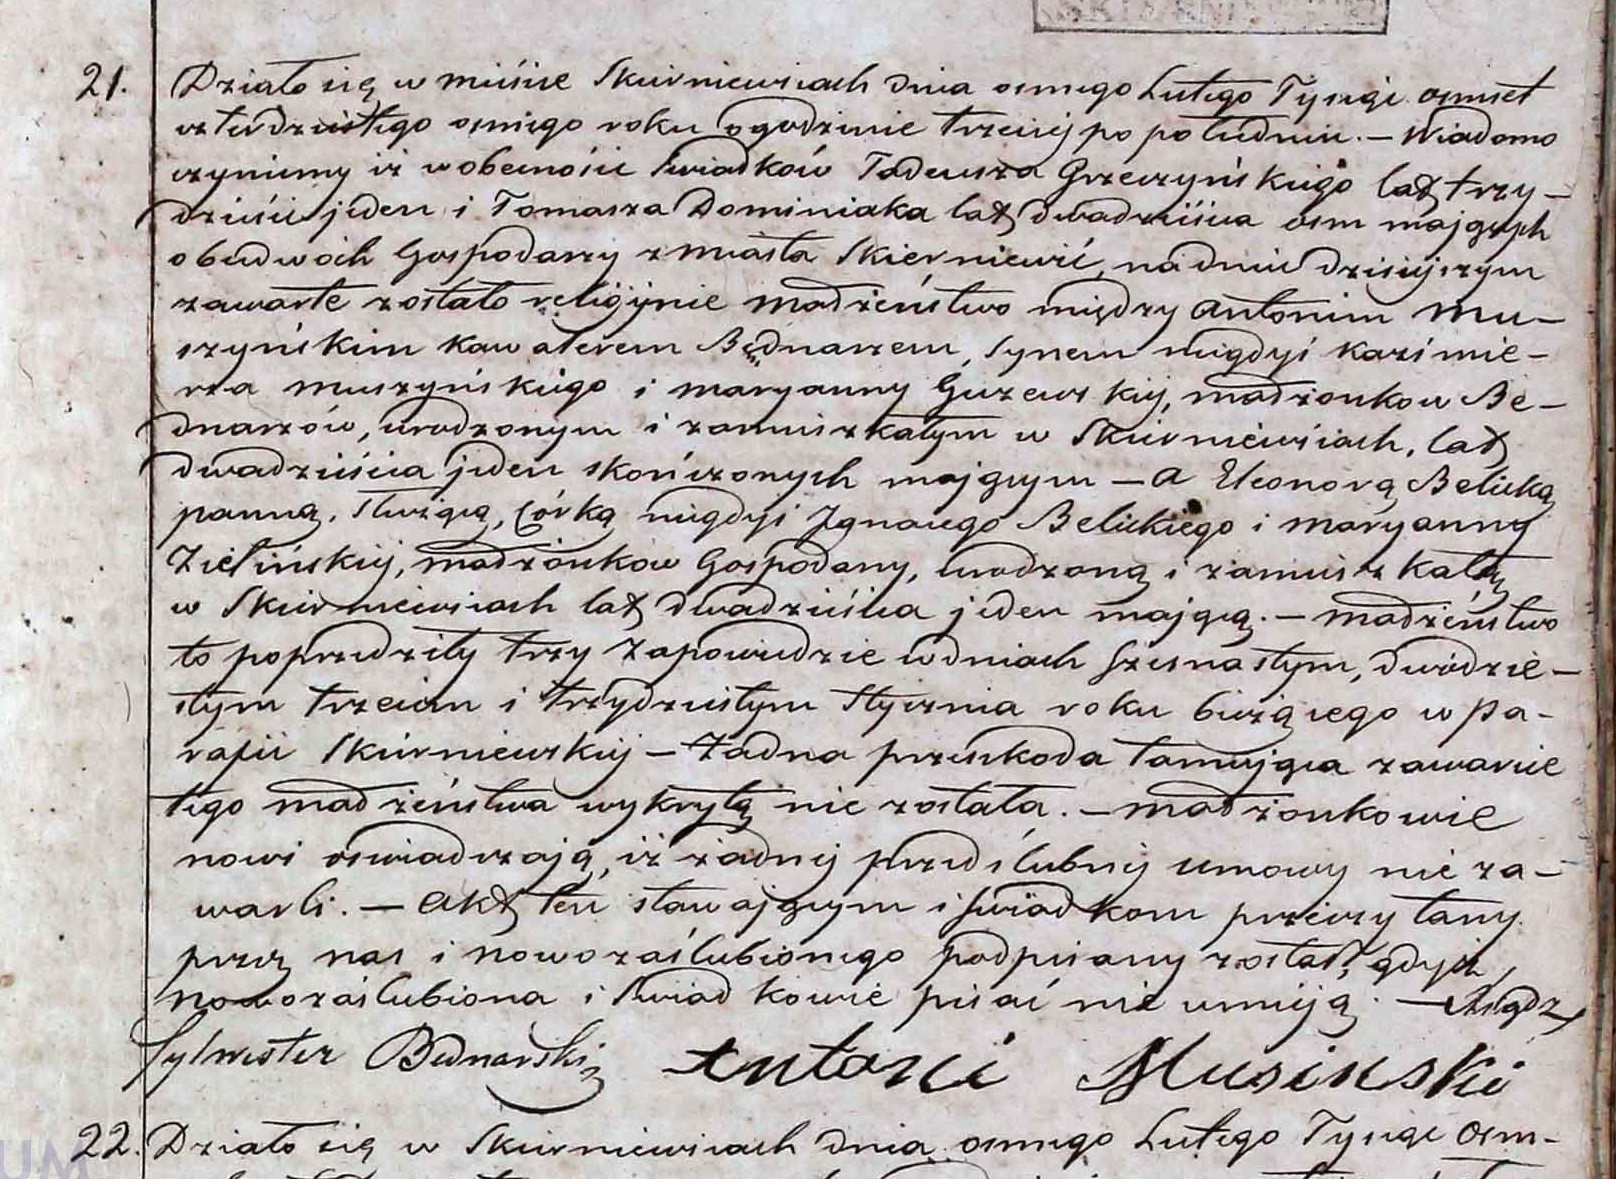 21. Działo się w mieście Skierniewicach dnia osmego Lutego Tysiąc osmset
czterdziestego osmego roku o godzinie trzeciej po południu. — Wiadomo
czyniemy iż w obecności Swiadków Tadeusza Grzeczyńskiego lat trzy–
dzieści jeden i Tomasza Dominiaka lat dwadzieścia osm mających
obudwóch Gospodarzy z miasta Skierniewic, na dniu dzisiejszym
zawarte zostało religijnie małżeństwo między Antonim Mu–
szyńskim kawalerem Bednarzem, Synem niegdyś Kaźmie–
rza Muszyńskiego i Maryanny Guzewskiej, małżonków Be–
dnarzów, urodzonym i zamieszkałym w Skierniewicach, lat
dwadzieścia jeden skończonych mającym — a Eleonorą Belicką
panną, służącą, Córką niegdyś Ignacego Belickiego i Maryanny
Zielińskiej, małżonków Gospodarzy, urodzoną i zamieszkałą
w Skierniewicach lat dwadzieścia jeden mającą. — Małżeństwo
to poprzedziły trzy zapowiedzie w dniach szesnastym, dwódzie–
stym trzecim i trzydziestym Stycznia roku bieżącego w pa–
rafii Skierniewskiej — Żadna przeszkoda tamująca zawarcie
tego małżeństwa wykrytą nie została. — Małżonkowie
nowi oswiadczają, iż żadnej przedślubnej umowy nie za–
warli. — Akt ten stawającym i swiadkom przeczytany
przez nas i nowozaślubionego podpisany został, gdyż
nowozaślubiona i Swiadkowie pisać nie umieją. —
Sylwester Bednarski Antoni Musinski
22. Działo się w Skierniewicach dnia osmego Lutego Tysiąc Osm–